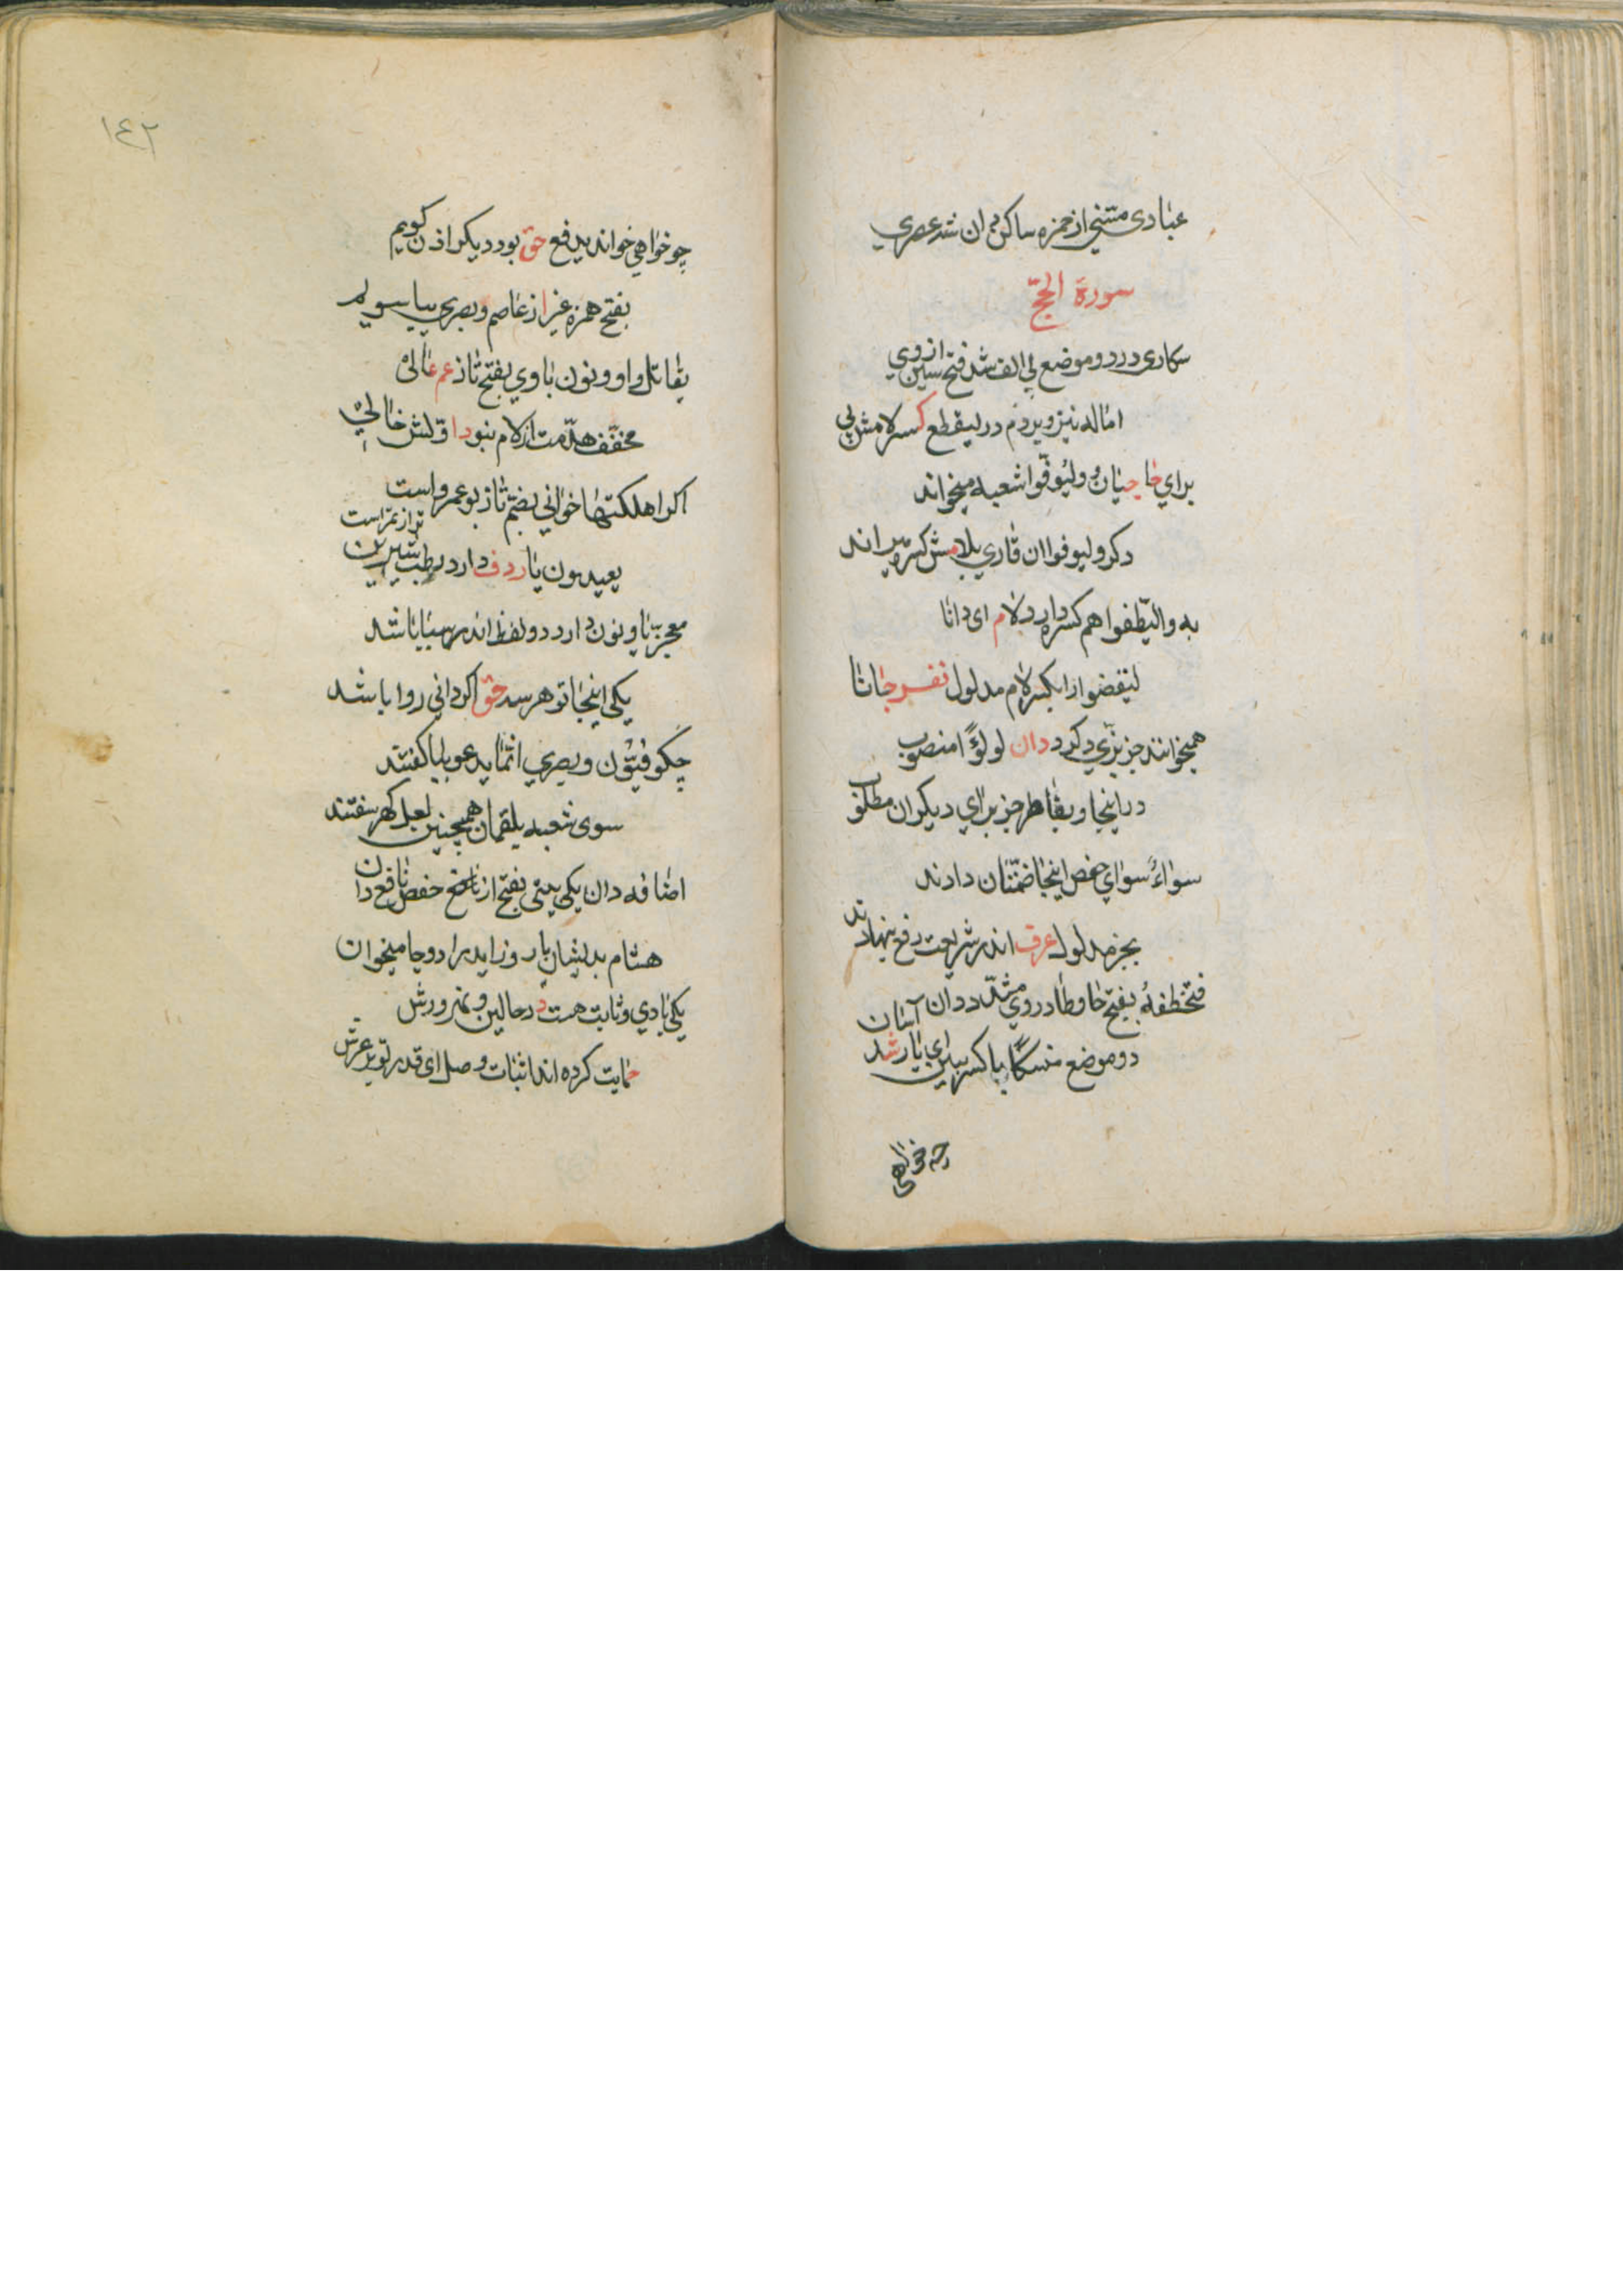 عبادی مسنی از حمزه ساکن دان شد عصری
سورة الحجّ
سکاری در دو موضع بی الف شد فتح سین از وی
اماله نیز ویردم در لیقطع کسر لامش پی
برای جا جنان ولیوفّوا شعبه میخواند
دکر ولیوفوا ان قاری بلامش کسره میراند
به والیطّفوا هم کسره دارد لام ای دانا
لیقضوا را بکسر لام مدلول نفر جانا
همیخوانند جز بزّی دکر د دان لولؤًا منصوب
در اینجا و بفاطر جز برای دیکران مطلوب
سواءً سوای حفص اینجا ضمّتان دادند
بجز مدلول عرف اندر شریعت رفع بنهادند
فتخطفهُ بفتح خا وطا در وی مشدّد دان آسان
دو موضع منسکًا با کسر سین ای یار شد
چه خواهی
١٤٢
چو خواهی خواند یدفع حق بود دیکر اذن کویم
بفتح همزه غیر از عاصم وبصری بیا سویم
یقاتل واو ونون با وی بفتح تا ز عم عالی
مخفّف هدّمت از لام نبود دا وّلش خالی
اکر اهلکتها خوانی بضم تا ز بو عمرو است
یعیدون یا ردف دارد رطب شیرین تر از تمر است
معجزین با ونون دارد دو لفظ اندر سبا باشد
یکی اینجا تو هر سه حق اکر دانی روا باشد
چکو فیتون وبصری انّما یدعو بیا کفتند
سوی شعبه بلقمان همچنین لعل کهر سفتند
اضافه دان یکی بیتی بفتح از ناصح حفص نافع دان
هشام بدلیشان یار وزاید را دو جا میخوان
یکی بادی وثابت هست در حالین و نمر ورش
حمایت کرده اند اثبات وصل ای قدر تو بر عرش